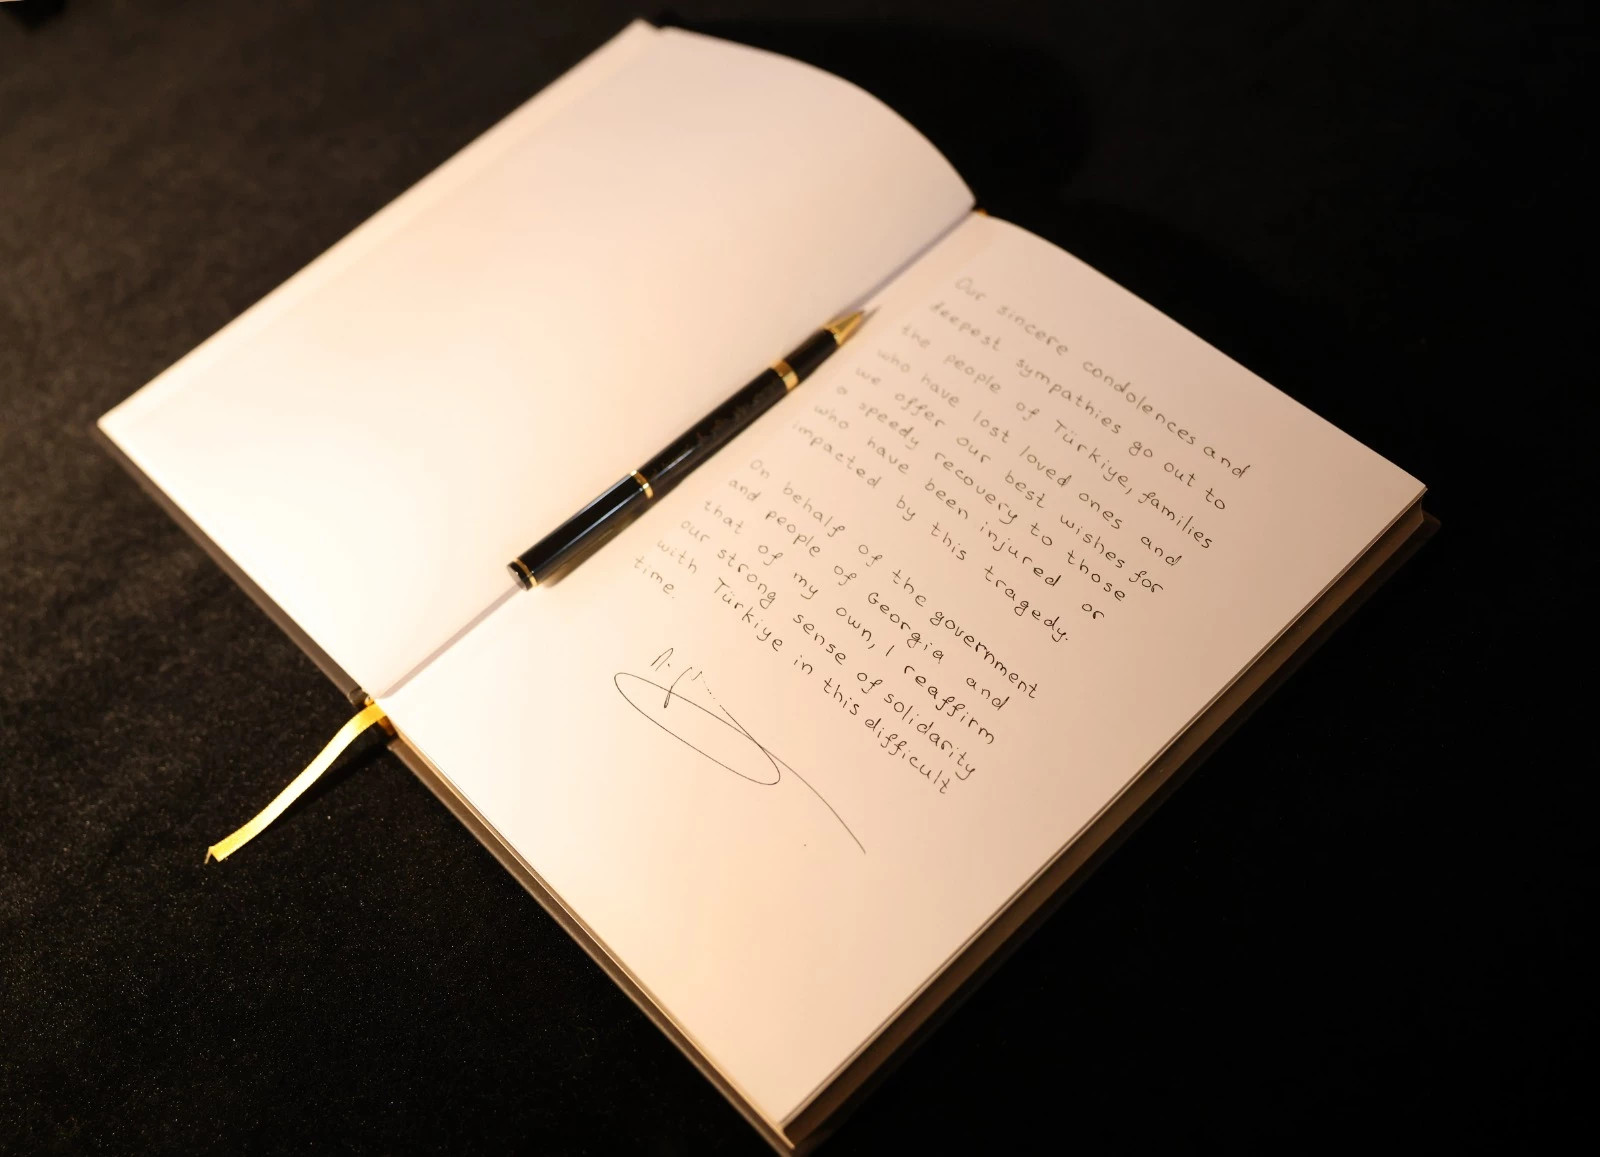 Our sincere condolences and
deepest sympathies go out to
the people of Türkiye, families
who have lost loved ones and
we offer our best wishes for
a speedy recovery to those
who have been injured or
impacted by this tragedy.
On behalf of the government
and people of Georgia and
that of my own, I reaffirm
our strong sense of solidarity
with Türkiye in this difficult
time.